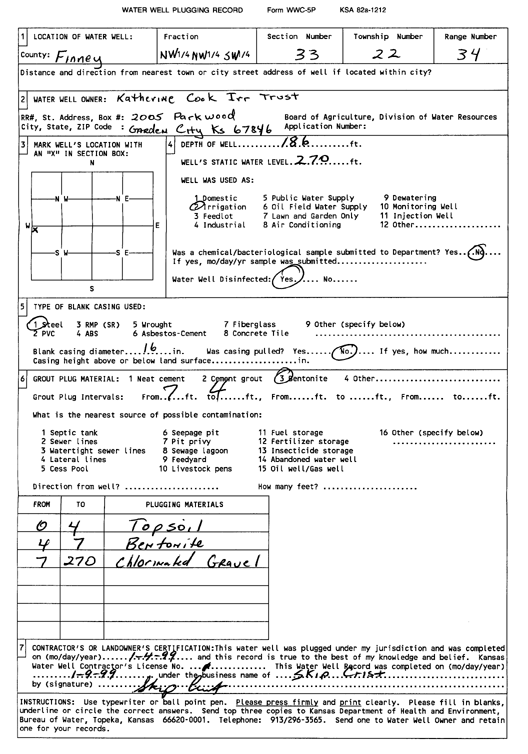 WATER WELL PLUGGING RECORD Form WWC-5P KSA 82a-1212
1 LOCATION OF WATER WELL: Fraction Section Number Township Number Range Number
County: Finney NW1/4 NW1/4 SW1/4 33 22 34
Distance and direction from nearest town or city street address of well if located within city?
2 WATER WELL OWNER: Katherine Cook Irr Trust
RR#, St. Address, Box #: 2005 Parkwood Board of Agriculture, Division of Water Resources
City, State, ZIP Code : Garden City Ks 67846 Application Number:
3 MARK WELL'S LOCATION WITH AN "X" IN SECTION BOX:
N
N W N E
W X E
S W S E
S
4 DEPTH OF WELL....186....ft.
WELL'S STATIC WATER LEVEL.270.....ft.
WELL WAS USED AS:
1 Domestic 5 Public Water Supply 9 Dewatering
2 Irrigation 6 Oil Field Water Supply 10 Monitoring Well
3 Feedlot 7 Lawn and Garden Only 11 Injection Well
4 Industrial 8 Air Conditioning 12 Other................
Was a chemical/bacteriological sample submitted to Department? Yes....No....
If yes, mo/day/yr sample was submitted....................
Water Well Disinfected: Yes..... No......
5 TYPE OF BLANK CASING USED:
1 Steel 3 RMP (SR) 5 Wrought 7 Fiberglass 9 Other (specify below)
2 PVC 4 ABS 6 Asbestos-Cement 8 Concrete Tile ..............................
Blank casing diameter....16...in. Was casing pulled? Yes.....No..... If yes, how much............
Casing height above or below land surface....................in.
6 GROUT PLUG MATERIAL: 1 Neat cement 2 Cement grout 3 Bentonite 4 Other..............................
Grout Plug Intervals: From..7..ft. to 4....ft., From......ft. to .....ft., From...... to......ft.
What is the nearest source of possible contamination:
1 Septic tank 6 Seepage pit 11 Fuel storage 16 Other (specify below)
2 Sewer lines 7 Pit privy 12 Fertilizer storage ........................
3 Watertight sewer lines 8 Sewage lagoon 13 Insecticide storage
4 Lateral lines 9 Feedyard 14 Abandoned water well
5 Cess Pool 10 Livestock pens 15 Oil well/Gas well
Direction from well? ...................... How many feet? ......................
FROM TO PLUGGING MATERIALS
0 4 Topsoil
4 7 Bentonite
7 270 Chlorinated Gravel
7 CONTRACTOR'S OR LANDOWNER'S CERTIFICATION:This water well was plugged under my jurisdiction and was completed
on (mo/day/year)......1-4-99.... and this record is true to the best of my knowledge and belief. Kansas
Water Well Contractor's License No. .................. This Water Well Record was completed on (mo/day/year)
....1-9-99.......... under the business name of ....Skip Crist..........
by (signature) ....Skip Crist..........
INSTRUCTIONS: Use typewriter or ball point pen. Please press firmly and print clearly. Please fill in blanks,
underline or circle the correct answers. Send top three copies to Kansas Department of Health and Environment,
Bureau of Water, Topeka, Kansas 66620-0001. Telephone: 913/296-3565. Send one to Water Well Owner and retain
one for your records.